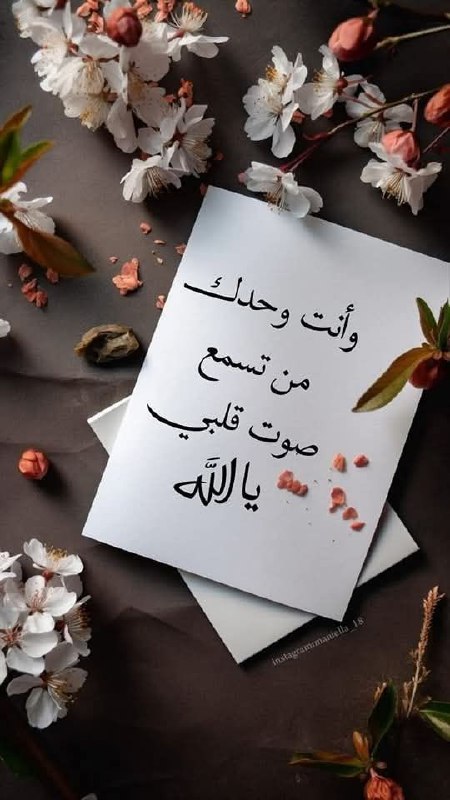 وأنت وحدك
من تسمع
صوت قلبي
يا الله